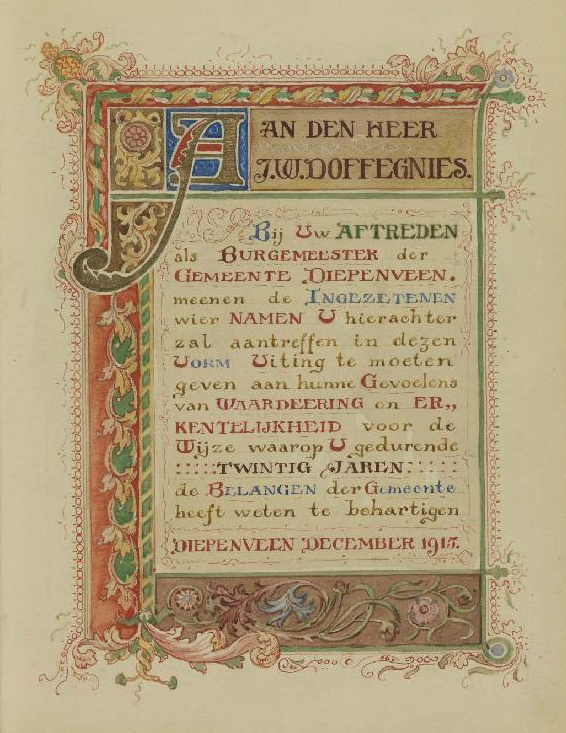 AAN DEN HEER
J.W. DOFFEGNIES.
Bij Uw AFTREDEN
als BURGEMEESTER der
GEMEENTE DIEPENVEEN.
meenen de INGEZETENEN
wier NAMEN U hierachter
zal aantreffen in dezen
VORM Uiting te moeten
geven aan hunne Gevoelens
van WAARDEERING en ER„
KENTELIJKHEID voor de
Wijze waarop U gedurende
:::::TWINTIG JAREN:::::
de BELANGEN der Gemeente
heeft weten te behartigen
DIEPENVEEN DECEMBER 1915.